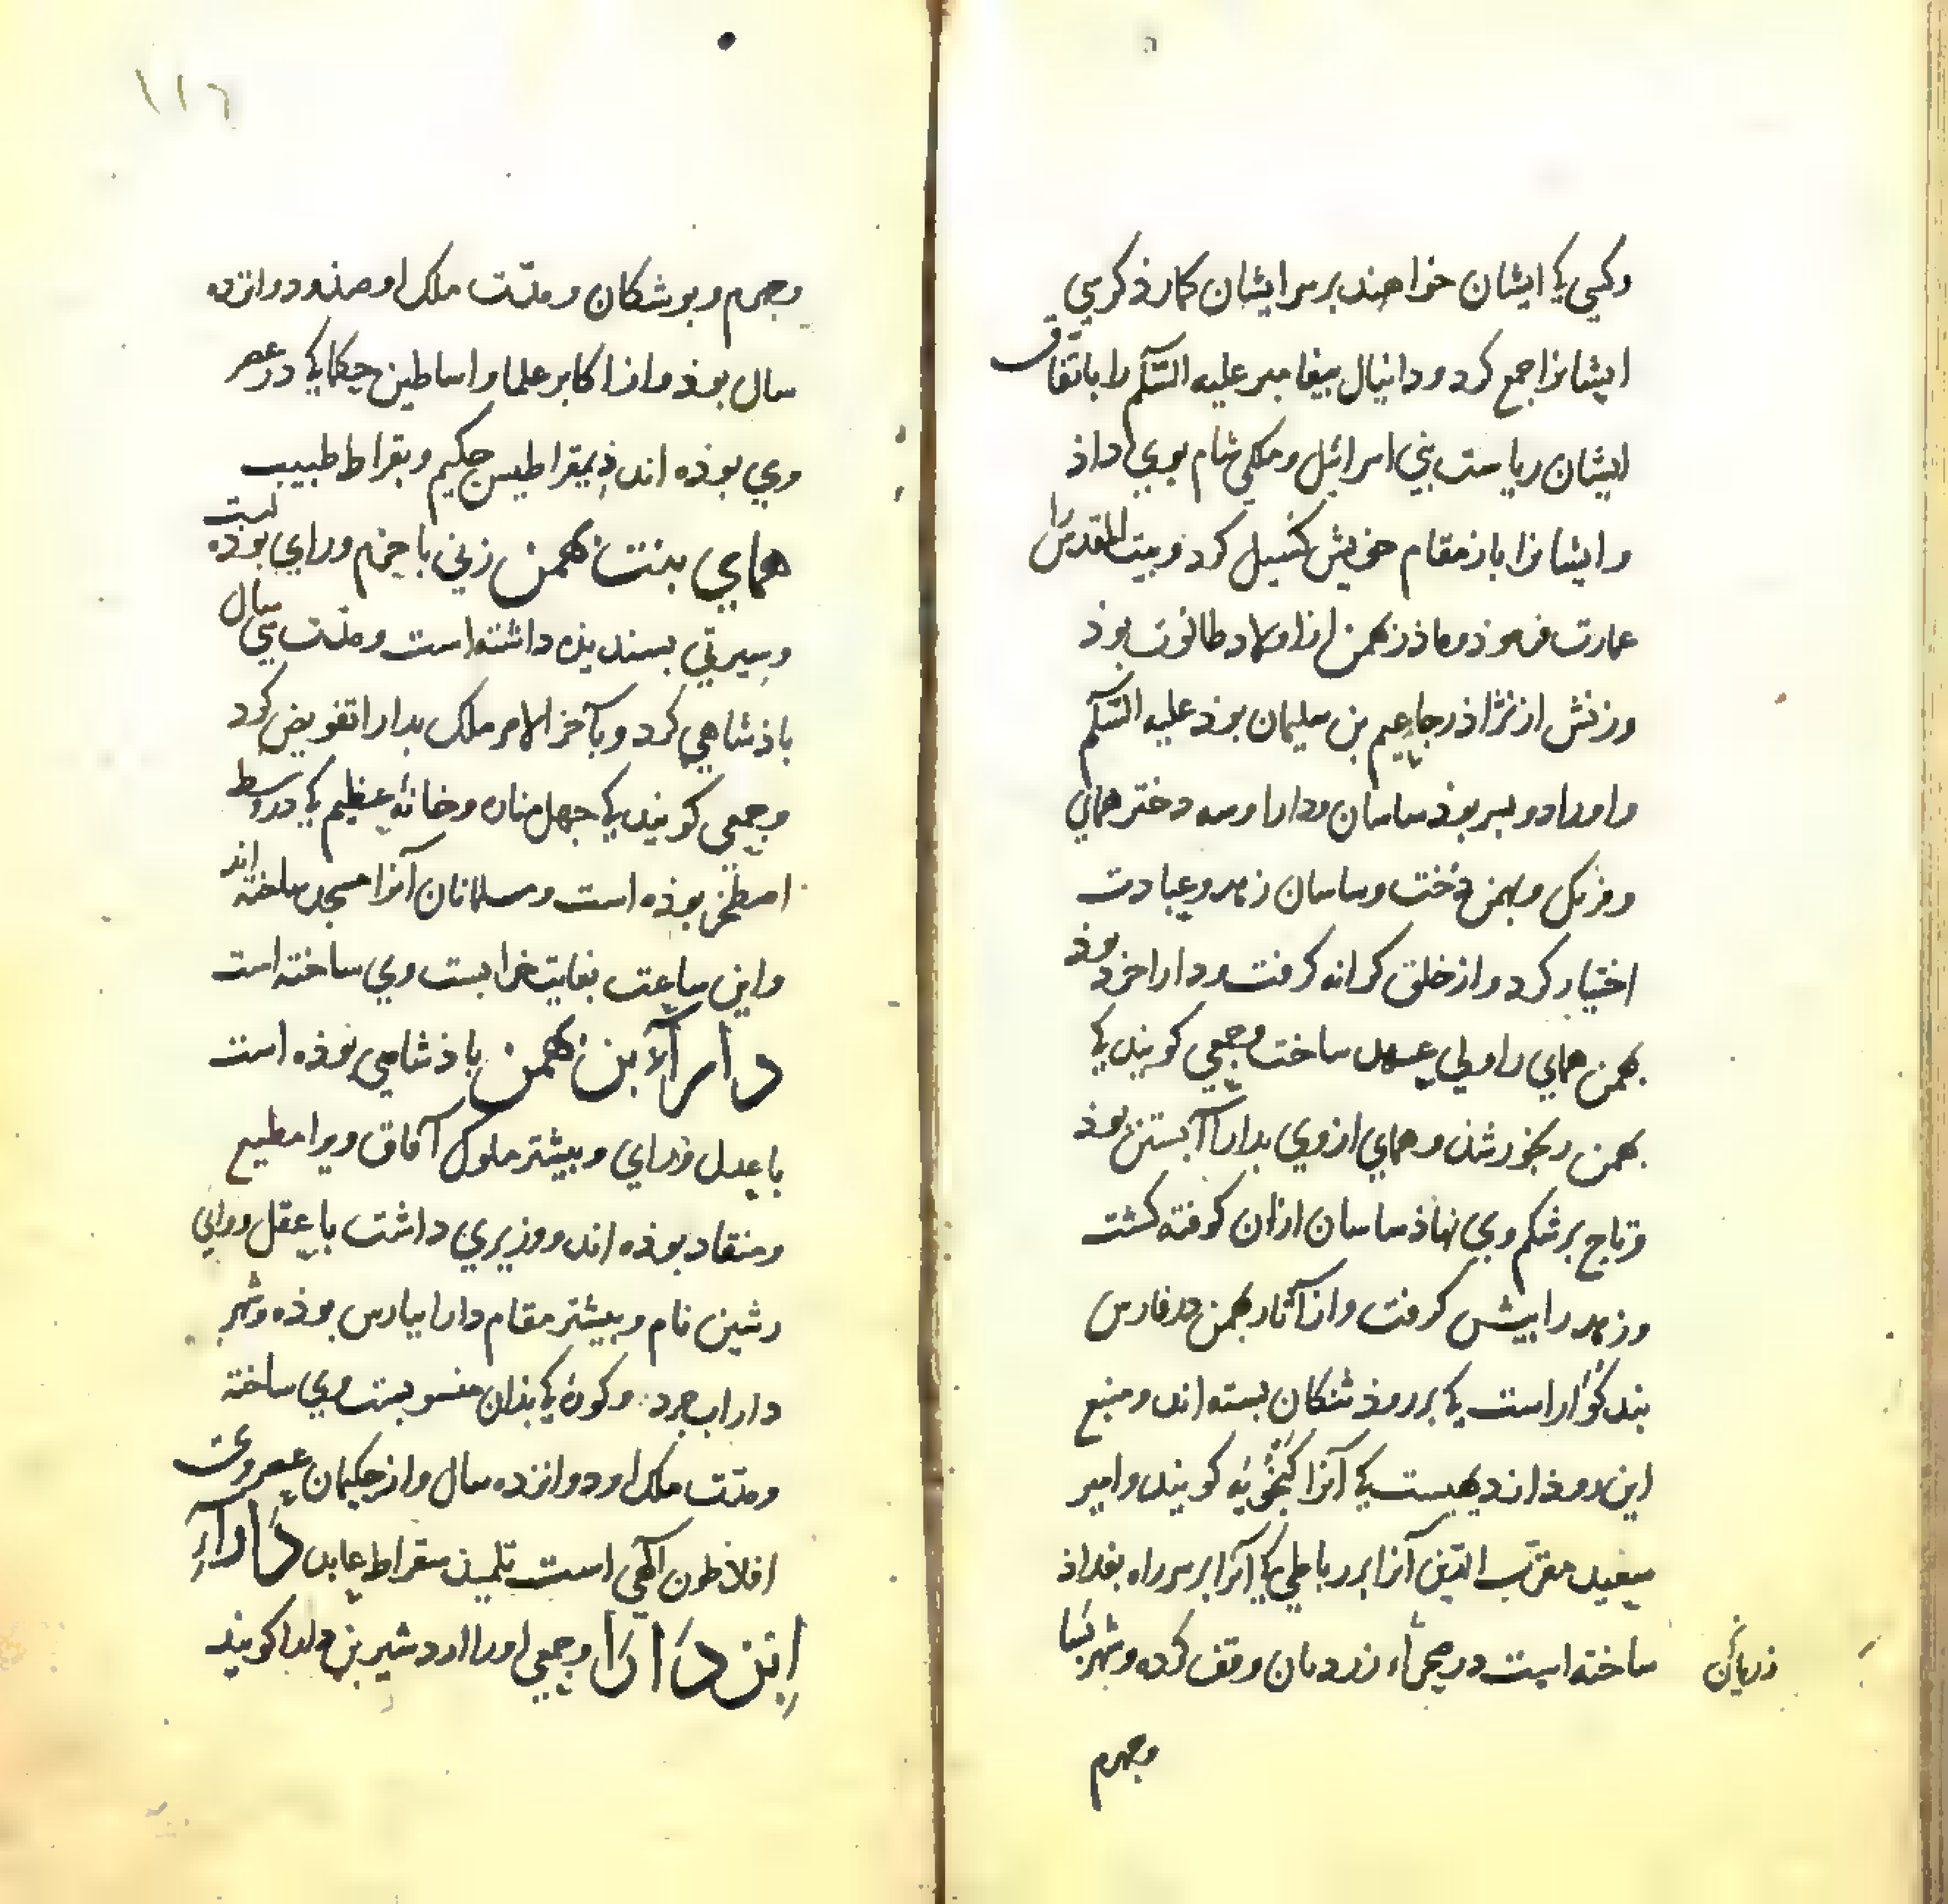 وکسی کی ایشان خواهند بر سر ایشان کمارذ کرسی
ایشانرا جمع کرد و دانیال پیغامبر علیه السّلم را باتّفاق
ایشان ریاست بنی اسرائیل و ملکی شام بوی داذ
و ایشانرا باز مقام خویش کسیل کرد و بیت المقدس را
عمارت فرموذ و ماذر بهمن از اولاد طالوت بوذ
و زنش از نژاذ رجاعیم بن سلیمان بوذ علیه السّلم
و اورا دو پسر بوذ ساسان و دارا و سه دختر همای
و فرنکل و بهمن دخت و ساسان زهد و عبادت
اختیار کرد و از خلق کرانه کرفت و دارا خرد بوذ
بهمن همای را ولی عهد ساخت و جمعی کویند کی
بهمن رنجور شد و همای از وی بدارا آبستن بوذ
و تاج بر شکم وی نهاذ ساسان ازان کوفته کشت
و زهد را پیش کرفت و از آثار بهمن در فارس
بند کوار است کی بر روذ ثکان بسته اند و منبع
این روذ از دیهیست کی آنرا کنجویه کویند و امیر
سعید مقرّب الدّین آنرا بر رباطی کی آنرا بر سر راه بغداذ
ساخته است در صحراء زردبان وقف کرده و شهر نسا
زریان
وجهرم
١١٦
وجهرم و بوشکان و مدّت ملک او صذ و دوازده
سال بوذ و از اکابر علما و اساطین حکما کی در عصر
وی بوذه اند ذیمقراطیس حکیم و بقراط طبیب
همای بنت بهمن زنی با حزم و رای بوذه است
و سیرتی بسندیذه داشته است و مدّت سی سال
باذشاهی کرد و بآخر الامر ملک بدارا تفویض کرد
و جمعی کویند کی جهل مناره و خانۀ عظیم کی در وسط
اصطخر بوذه است و مسلمانان آنرا مسجد ساخته اند
و این ساعت بغایت خرابست وی ساخته است
دارآء بن بهمن باذشاهی بوذه است
با عدل و رای و بیشتر ملوک آفاق ویرا مطیع
و منقاد بوذه اند و وزیری داشت با عقل و رای
رشین نام و بیشتر مقام دارا بپارس بوذه و شهر
داراب جرد و کورۀ کی بذان منسوبست وی ساخته
و مدّت ملک او دوازده سال و از حکیمان عصر وی
افلاطون آلهی است تلمیذ سقراط عابد دارآء
ابن دارا و جمعی اورا اردشیر بن دارا کویند